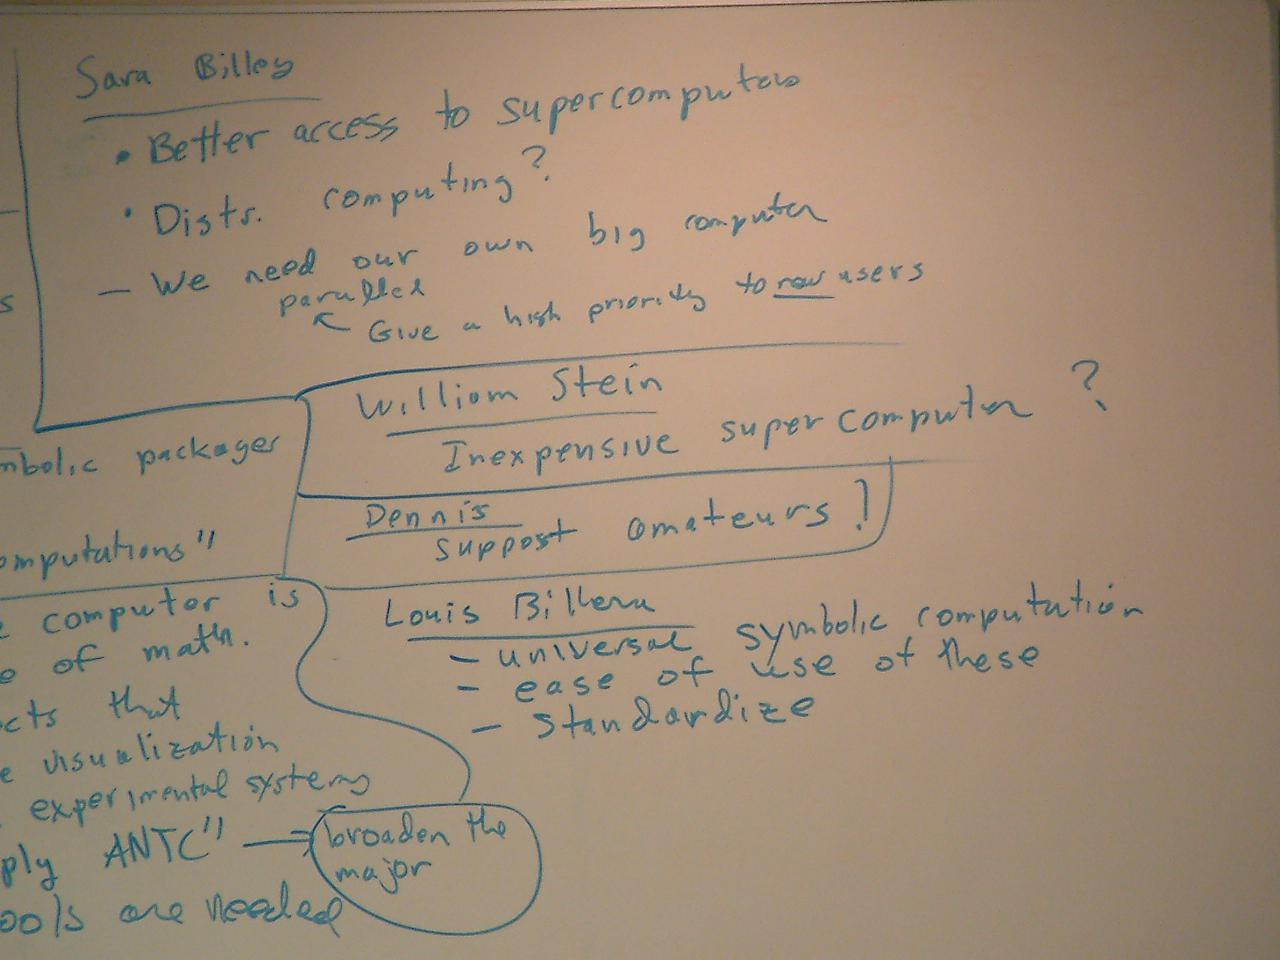 Sara Billey
• Better access to supercomputers
• Distr. computing?
— We need our own big computer
parallel
Give a high priority to new users
William Stein
Inexpensive super computer ?
Dennis
support amateurs!
Louis Billera
- universal symbolic computation
- ease of use of these
- standardize
s
mbolic packages
omputations"
e computer is
e of math.
cts that
e visualization
experimental systems
ply ANTC" → broaden the
major
ools are needed